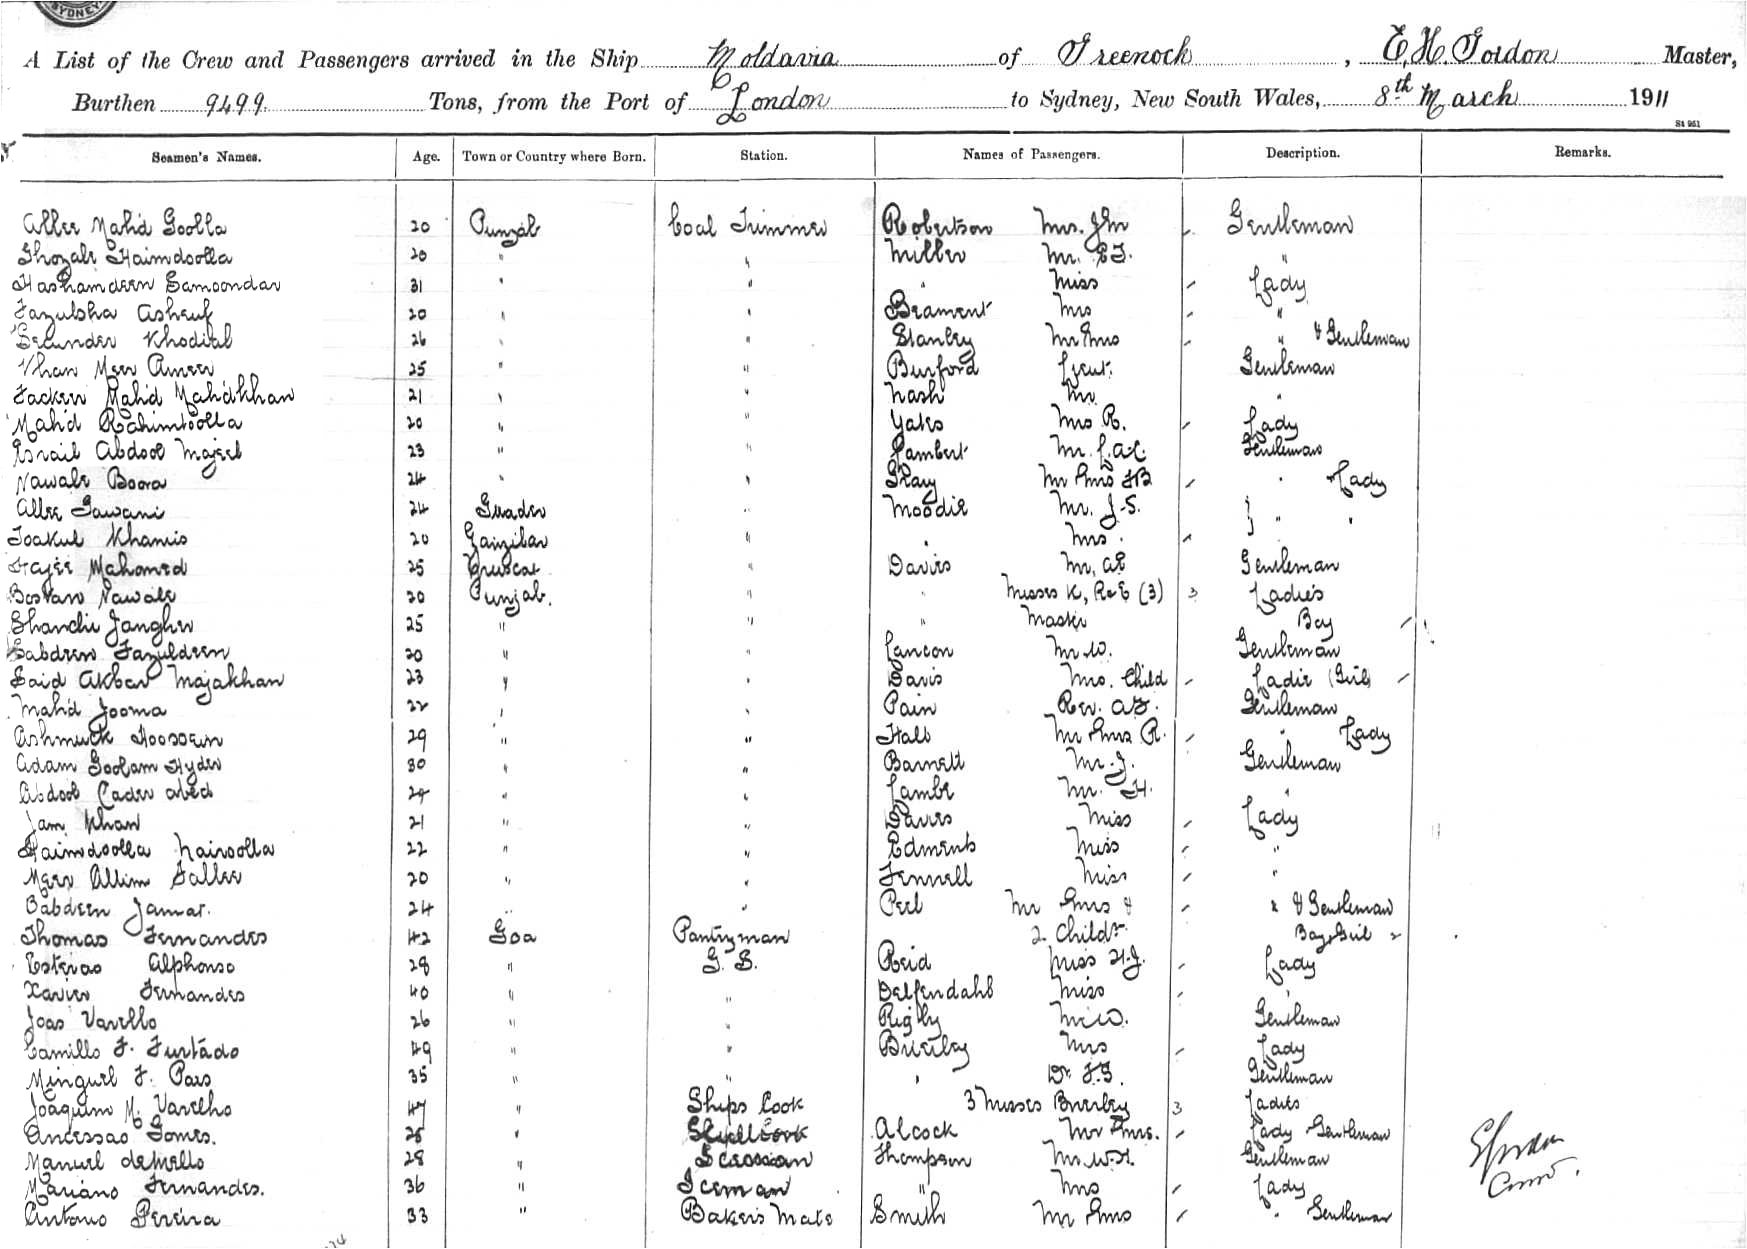 SYDNEY
A List of the Crew and Passengers arrived in the Ship Moldavia of Greenock, E. H. Gordon Master,
Burthen 9499 Tons, from the Port of London to Sydney, New South Wales, 8th March 1911
Seamen's Names. Age. Town or Country where Born. Station. Names of Passengers. Description. Remarks.
Allee Mahd Goolla 20 Punjab Coal Trimmer Robertson Mr. Jhn Gentleman
20 " " Miller Mr. "
31 " " " Miss Lady
20 " " Beament Mrs "
Khodibal 26 " " Stanley Mr & Mrs " & Gentleman
Khan Meer Ameer 25 " " Burford Lieut. Gentleman
Mahd Mahdkhan 21 " " Nash Mr "
Mahd Rahimtoolla 20 " " Yates Mrs R. Lady
Esrail Abdool Majeed 23 " " Lambert Mr. L.A.C. Gentleman
Nawab Boora 24 " " Gray Mr & Mrs " Lady
Allee 24 Guader " Moodie Mr. J. S. " "
Khamis 20 Zanzibar " " Mrs.
Hajee Mahomed 25 Muscat " Davies Mr. Gentleman
Bostan Nawab 20 Punjab. " " Misses K, R & E (3) 3 Ladies
Jangher 25 " " " Master Boy
Fazuldeen 20 " " Mr W. Gentleman
Said Akbar Majakhan 23 " " Davis Mrs. Child Girl
Mahd Jooma 22 " " Pain Rev. Gentleman
Hoossein 29 " " Hall Mr & Mrs R. " Lady
Adam Goolam Hyder 30 " " Barnett Mr. J. Gentleman
Abdool Cader 24 " " Lambe Mr. H. "
Jam Khan 21 " " Davies Miss Lady
Haimdoolla 22 " " Edments Miss "
Meer Allim 20 " " Fennell Miss "
24 " " Peel Mr & Mrs & " & Gentleman
Thomas Fernandes 42 Goa Pantryman 2 Childr. Boy & Girl 2
Alphonso 28 " G. S. Reid Miss Lady
Xavier Fernandes 40 " " Miss "
Joas Varello 26 " " Rigby Mr W. Gentleman
Camillo F. Furtado 49 " " Brierley Mrs Lady
Minguel F. Pais 35 " " " Dr. Gentleman
Joaquim M. Varelho 47 " Ships Cook 3 Misses Brierley 3 Ladies
Gomes. " Alcock Mr & Mrs. Lady Gentleman
Manuel deMello 28 " Thompson Mr. W.H. Gentleman
Mariano Fernandes. 36 " Iceman " Mrs Lady
Antonio Pereira 33 " Bakers Mate Smith Mr & Mrs " Gentleman